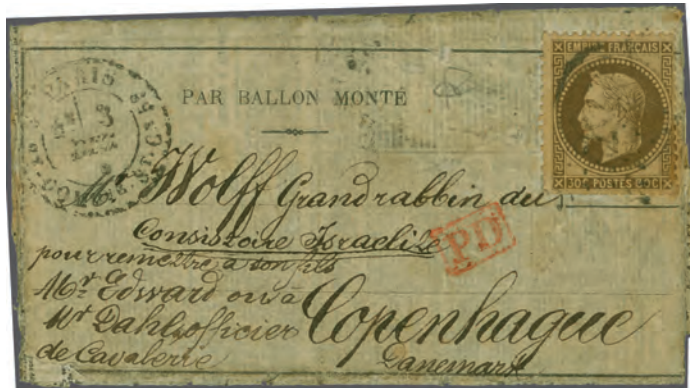 EMPIRE FRANÇAIS
PAR BALLON MONTÉ
PARIS
3
30 C POSTES 30 C
Mr Wolff Grand rabbin du
Consistoire Israelite
PD
pour remettre à son fils
Mr Edward ou à
Mr Dahl officier
de Cavalerie
Copenhague
Danemark